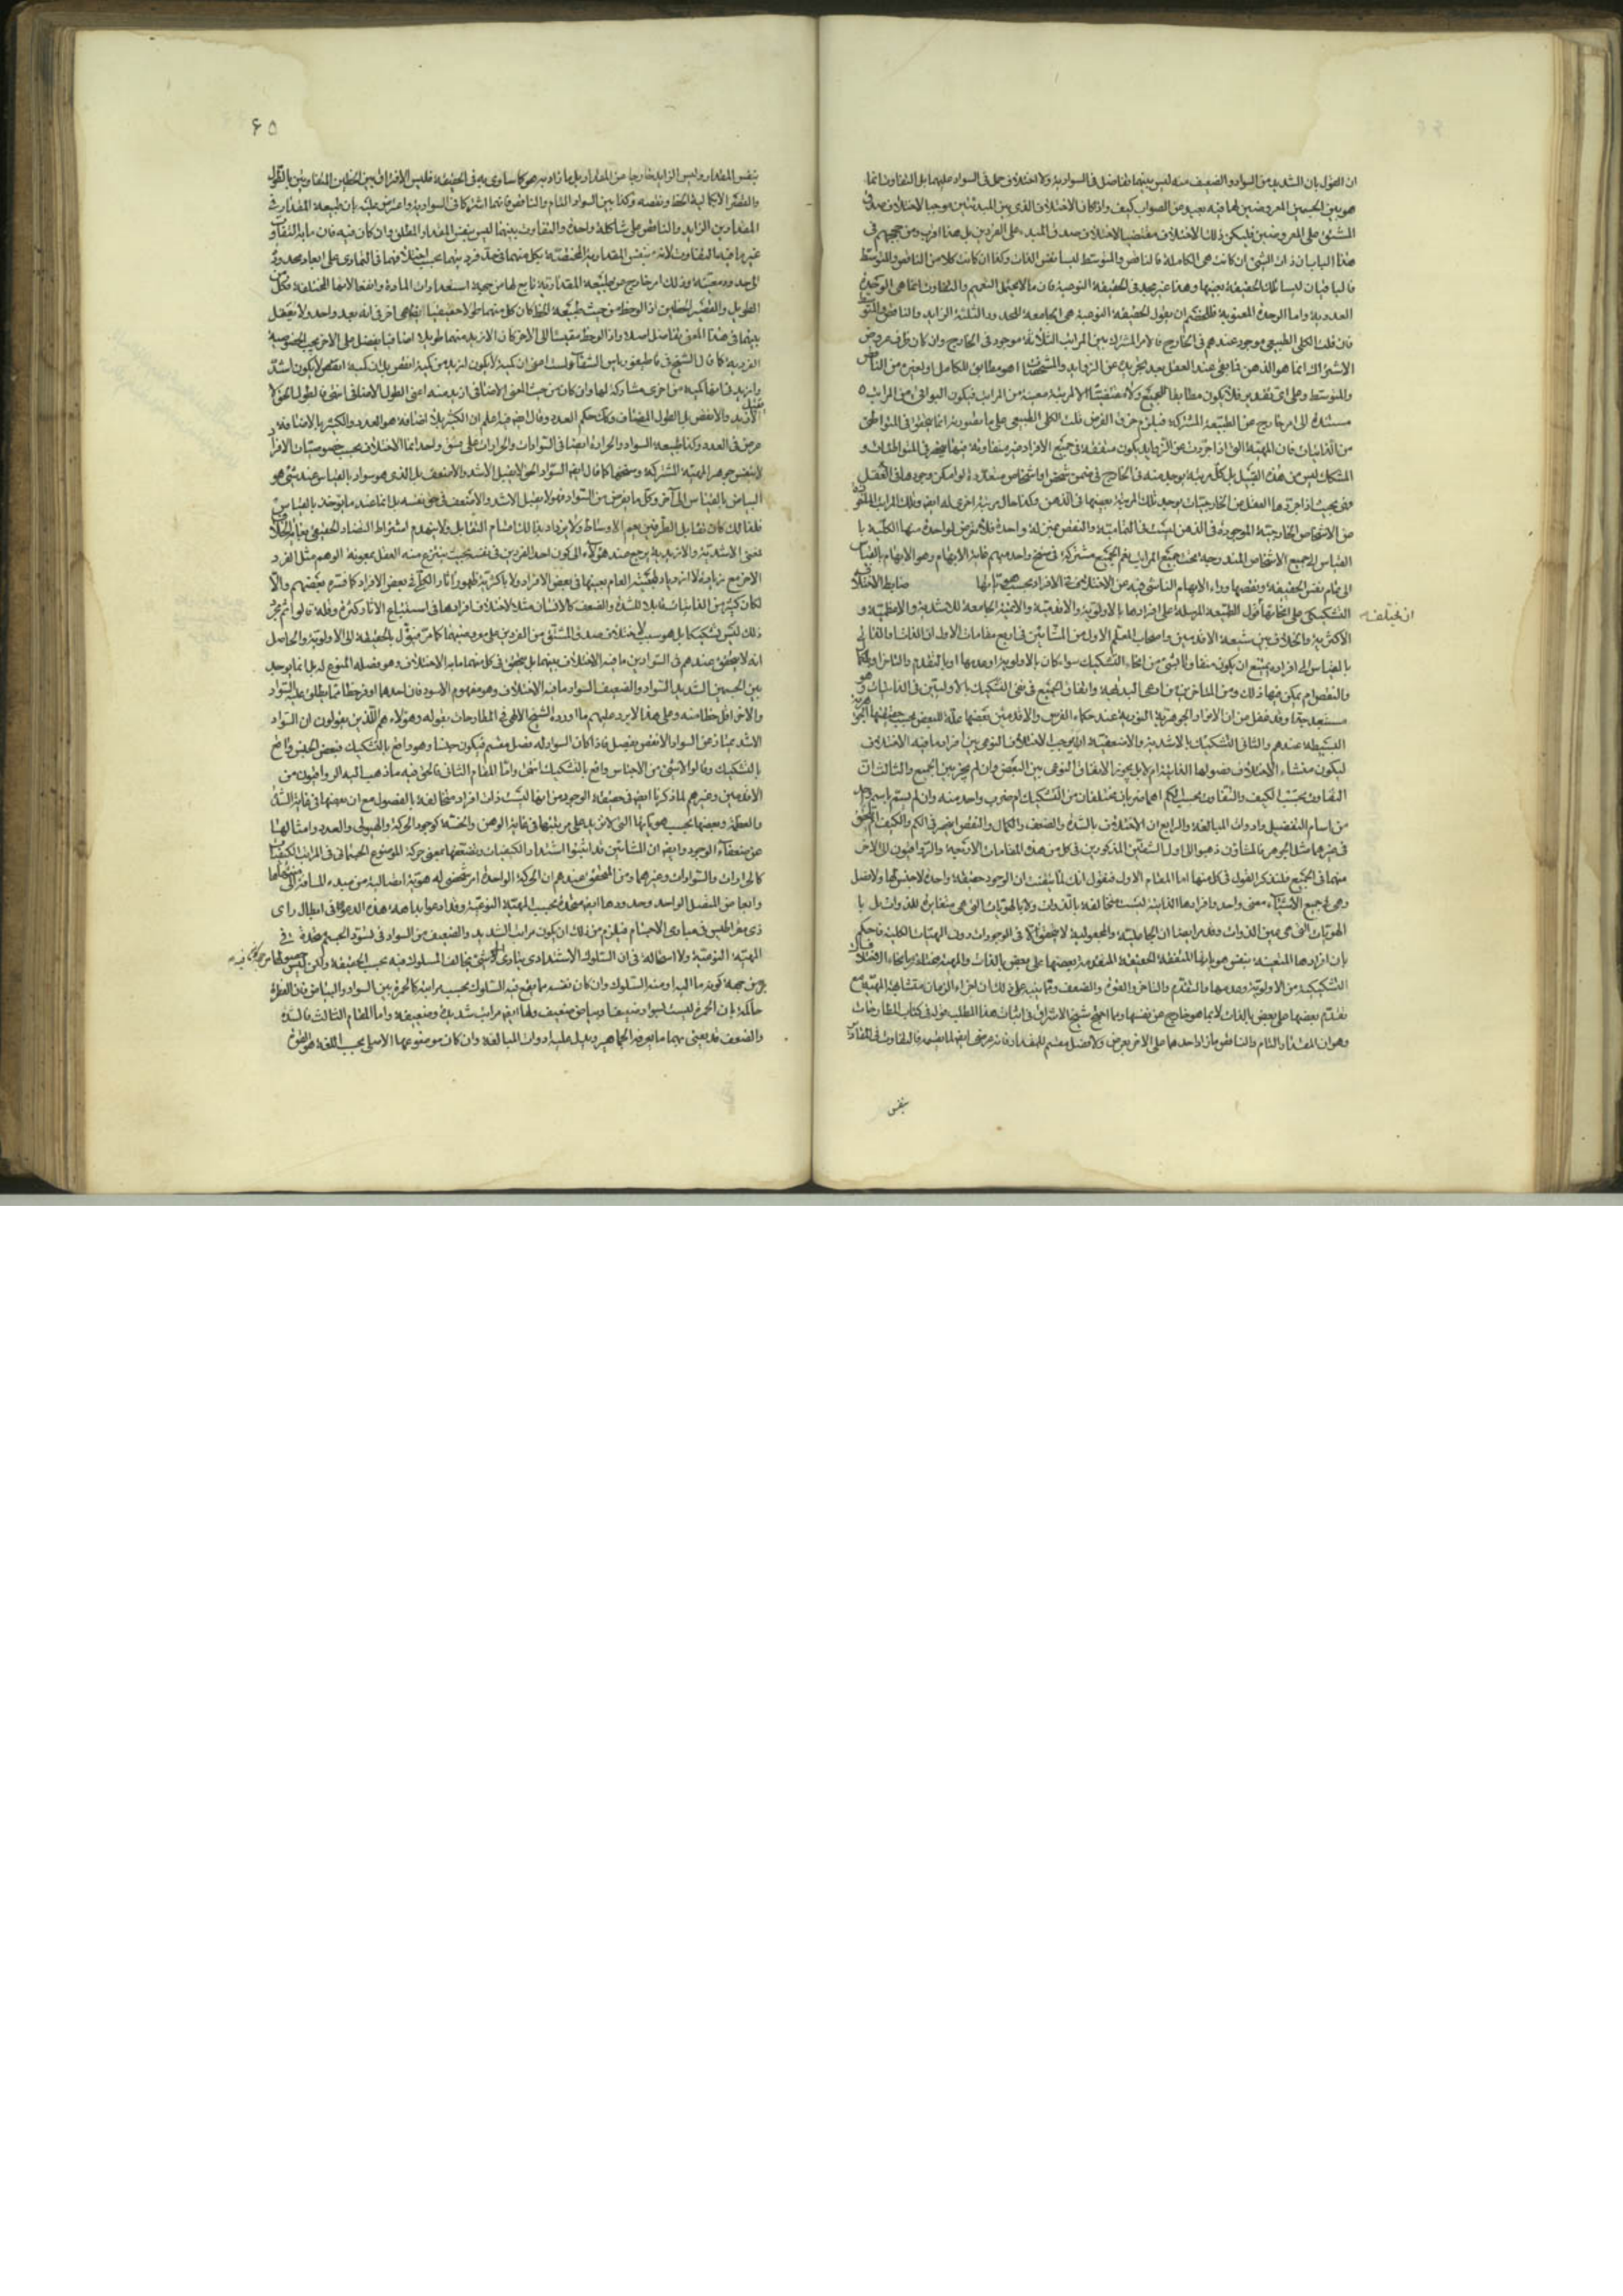 ان القول بان الشديد من السواد والضعيف منه ليس بينهما تفاضل فى السوادية ولا اختلاف حمل فى السواد عليهما بل التفاوت انما
هو بين الجسمين المعروضين لهما فيه بعيد من الصواب كيف واذا كان الاختلاف الذى بين المبدئين موجبا لاختلاف صدق
المشتق على المعروضين فليكن ذلك الاختلاف مقتضيا لاختلاف صدق المبدء على الفردين بل هذا اقرب ومن حججهم فى
هذا الباب ان ذات الشئ ان كانت هى الكاملة فالناقص والمتوسط ليسا نفس الذات وكذا ان كانت كلا من الناقص والمتوسط
فالباقيان ليسا تلك الحقيقة بعينها وهذا غير مجد فى الحقيقة النوعية فان ما لا يحتمل التعميم والتفاوت انما هى الوحدة
العددية واما الوحدة المعنوية فللخصم ان يقول الحقيقة النوعية هى الجامعة للحدود الثلثة الزايد والناقص والمتوسط
فان قلت الكلى الطبيعى موجود عندهم فى الخارج فالامر المشترك بين المراتب الثلاثة موجود فى الخارج وان كان ظرف عروض
الاشتراك انما هو الذهن فما بقى عند العقل بعد تجريده عن الزوايد والمشخصات اهو مطابق للكامل او لغيره من الناقص
والمتوسط وعلى اى تقدير فلا يكون مطابقا للجميع ولا مقتضيا الا لمرتبة معينة من المراتب فيكون البواقى من المراتب
مستندة الى امر خارج عن الطبيعة المشتركة فيلزم خرق الفرض قلت الكلى الطبيعى على ما تصوره انما يتحقق فى المتواطى
من الذاتيات فان المهية التى اذا جردت عن الزوايد يكون متفقة فى جميع الافراد غير متفاوتة فيها ينحصر فى المتواطئات و
المشكك ليس من هذا القبيل بل كل مرتبة يوجد منه فى الخارج فى ضمن شخص او اشخاص متعددة لو امكن وجودها فى العقل
فهى بحيث اذا جردها العقل عن الخارجيات يوجد تلك المرتبة بعينها فى الذهن وكذا حال مرتبة اخرى له ايضا
من الاشخاص الخارجية الموجودة فى الذهن ليست فى التمامية والنقص بمنزلة واحدة فلا يعرض لواحدة منها الكلية با
القياس الى جميع الاشخاص المندرجة تحت جميع المراتب نعم الجميع مشترك فى سنخ واحد مبهم غاية الابهام وهو الابهام بالقياس
الى تمام نفس الحقيقة ونقصها وراء الابهام الناشى فيه عن الاختلاف فى الافراد بحسب هوياتها ضابط الاختلاف
التشكيكى على انحائه ان يختلف قول الطبيعة المرسلة على افرادها بالاولوية والاقدمية والاتمية الجامعة للاشدية والاعظمية و
الاكثرية والخلاف بين شيعة الاقدمين واصحاب المعلم الاول من المشائين فى اربع مقامات الاول ان الذات والذاتى
بالقياس الى افراده يمتنع ان يكون متفاوتا بشئ من انحاء التشكيك سواء كان بالاولوية وعدمها او بالتقدم والتاخر او بالكمال
والنقص ام يمكن فيها ذلك ومن المتاخرين من ادعى البداهة واتفاق الجميع فى نفى التشكيك بالاوليين فى الذاتيات وهو
مستبعد جدا وقد غفل من ان الافراد الجوهرية النورية عند حكماء الفرس والاقدمين بعضها علة للبعض بحسب
البسيطة عندهم والثانى التشكيك بالاشدية والاضعفية ايوجب الاختلاف النوعى بين افراد ما فيه الاختلاف
ليكون منشاء الاختلاف فصولها الذاتية ام لا بل يجوز الاتفاق النوعى بين البعض وان لم يجز بين الجميع والثالث ان
التفاوت بحسب الكيف والتفاوت بحسب الكم اهما ضربان مختلفان من التشكيك ام ضرب واحد منه وان لم يسم باسم واحد
من اسام التفضيل وادوات المبالغة والرابع ان الاختلاف بالشدة والضعف والكمال والنقص اينحصر فى الكم والكيف ام يتحقق
فى غيرهما مثل الجوهر فالمشاؤن ذهبوا الى اول الشقين المذكورين فى كل من هذه المقامات الاربعة والرواقيون الى الاخر
منهما فى الجميع فلنذكر القول فى كل منها اما المقام الاول فنقول انك لما تيقنت ان الوجود حقيقة واحدة لا جنس لها ولا فصل
وهى فى جميع الاشياء معنى واحد وافرادها الذاتية ليست متخالفة بالذوات ولا بالهويات التى هى مغايرة للذوات بل با
الهويات التى هى عين الذوات وقد مر ايضا ان الجاعلية والمجعولية لا يتحقق الا فى الوجودات دون المهيات الكلية فاحكم
بان افرادها المتعينة بنفس هوياتها المتفقة الحقيقة المتقدمة بعضها على بعض بالذات والمهية مختلفة بانحاء الاختلاف
التشكيكية من الاولوية وعدمها والتقدم والتاخر والقوة والضعف ومما ينبه على ذلك ان اجزاء الزمان متشابهة المهية مع
تقدم بعضها على بعض بالذات لا بما هو خارج عن نفسها ومما احتج شيخ الاشراق فى اثبات هذا المطلب قوله فى كتاب المطارحات
وهو ان المقدار التام والناقص ما زاد احدهما على الاخر بعرض ولا فصل مقسم للمقدار فانه عرضى ايضا لما يقسمه فالتفاوت فى المقادير
بنفس
ان يختلف
٦٥
بنفس المقدار وليس الزايد خارجا عن المقدار بل ما زاد به هو كما ساوى به فى الحقيقة فليس الافتراق بين الخطين المتفاوتين بالطول
والقصر الا بكمالية الخط ونقصه وكذا بين السواد التام والناقص فانهما اشتركا فى السوادية واعترض عليه بان طبيعة المقدار فى
المقدارين الزايد والناقص على شاكلة واحدة والتفاوت بينهما ليس بنفس المقدار المطلق وان كان فيه فان ما به التفاوت
غير ما فيه التفاوت لانه بنفس المقدارية المختصة بكل منهما فى حد فرديتهما بحسب اختلافهما فى التمادى على ابعاد محدودة
الى حدود معينة وذلك امر خارج عن طبيعة المقدارية تابع لها من جهة استعدادات المادة وانفعالاتها المختلفة فكل من
الطويل والقصير الخطين اذا لوحظ من حيث طبيعة الخط كان كل منهما طولا حقيقيا اى كمية فى انه بعد واحد ولا يعقل
بينهما فى هذا المعنى تفاضل اصلا واذا لوحظ مقيسا الى الاخر كان الازيد منهما طويلا اضافيا يفضل على الاخر بحسب الخصوصية
الفردية كما قال الشيخ فى قاطيغورياس الشفا ولست اعنى ان كمية لا يكون ازيد من كمية انقص بل ان كمية لا يكون اشد
وازيد فى انها كمية من اخرى مشاركة لها وان كان من حيث المعنى الاضافى ازيد منه اعنى الطول الاضافى ايضا فالطول الحق لا يقبل
الازيد والانقص بل الطول المضاف وكذلك حكم العدد وقال ايضا فيه اعلم ان الكثير بلا اضافة هو العدد والكثير بالاضافة
عرض فى العدد وكذا طبيعة السواد والحرارة ايضا فى السوادات والحرارات على سنن واحد انما الاختلاف بحسب خصوصيات الافراد
لا بنفس جوهر المهية المشتركة وسنخها كما قال ايضا السواد الحق لا يقبل الاشد والاضعف بل الذى هو سواد بالقياس عند شئ هو
البياض بالقياس الى آخر وكل ما يفرض من السواد فهو لا يقبل الاشد والاضعف فى حق نفسه بل انما عند ما يؤخذ بالقياس
فلذا لك كان تقابل الطرفين يعم الاوساط ولا يزداد بذالك اقسام التقابل ولا ينهدم اشتراط التضاد الحقيقى بغاية الخلاف ومرجع
معنى الاشدية والازيدية يرجع عند هؤلاء الى كون احد الفردين فى نفسه بحيث ينتزع منه العقل بمعونة الوهم مثل الفرد
الاخر مع زيادة لا ازدياد طبيعته العام بعينها فى بعض الافراد ولا باكثرية ظهور آثار الكلى فى بعض الافراد كما فسره بعضهم والا
لكان كثير من الذاتيات قابلا للشدة والضعف كالانسان مثلا لاختلاف افرادها فى استتباع الاثار كثرة وقلة قالوا ثم مجرد
ذلك ليس تشكيكا بل هو سبب لاختلاف صدق المشتق من الفردين على معروضيهما كما مر فيؤل بالحقيقة الى الاولوية والحاصل
انه لا يتحقق عندهم فى السوادين ما فيه الاختلاف بينهما بل يتحقق فى كل منهما ما به الاختلاف وهو فصله المنوع له بل انما يوجد
بين الجسمين الشديد السواد والضعيف السواد ما فيه الاختلاف وهو مفهوم الاسود فان احدهما اوفر حظا مما يطلق عليه السواد
والاخر اقل حظا منه وعلى هذا لا يرد عليهم ما اورده الشيخ الالهى فى المطارحات بقوله وهؤلاء هم الذين يقولون ان السواد
الاشد يمتاز عن السواد الانقص بفصل فاذا كان السواد له فصل مقسم فيكون جنسا وهو واقع بالتشكيك فبعض الجنس واقع
بالتشكيك وقالوا لا شئ من الاجناس واقع بالتشكيك انتهى واما المقام الثانى فالحق فيه ما ذهب اليه الرواقيون من
الاقدمين وغيرهم لما ذكرنا ايضا فى حقيقة الوجود من انها ليست ذات افراد متخالفة بالفصول مع ان بعضها فى غاية الشدة
والعظمة وبعضها بحسب هوياتها التى لا تزيد على مرتبتها فى غاية الوهن والخسة كوجود الحركة والهيولى والعدد وامثالها
من ضعفاء الوجود وايضا ان المشائين قد اثبتوا اشتداد الكيفيات وتضعفها بمعنى حركة الموضوع الجسمانى فى المراتب الكيفيات
كالحرارات والسوادات وغيرهما ومن المحقق عندهم ان الحركة الواحدة امر شخصى له هوية اتصالية من مبدء المسافة الى منتهاها
وابعاض المتصل الواحد وحدودها ايضا متحدة بحسب المهية النوعية وقد ادعوا بداهة هذه الدعوى فى ابطال راى
ذى مقراطيس فى مبادى الاجسام فيلزم من ذلك ان يكون مراتب الشديد والضعيف من السواد فى تسود الجسم متحدة فى
المهية النوعية ولا استحالة فى ان السلوك الاشتدادى يتادى الى شئ يخالف المسلوك فيه بحسب الحقيقة ولكن ليس
من جهة كونه ما اليه او منه السلوك وان كان نفسه مما يقع فيه السلوك بحسب مراتبه كالحمرة بين السواد والبياض فان الفطرة
حاكمة بان الحمرة ليست سوادا ضعيفا وبياض ضعيف ولها ايضا مراتب شديدة وضعيفة واما المقام الثالث فالشدة
والضعف قد يعنى بهما ما يعرفه الجماهير ويدل عليه ادوات المبالغة وان كان موضوعها الاصلى بحسب اللغة هو القوة